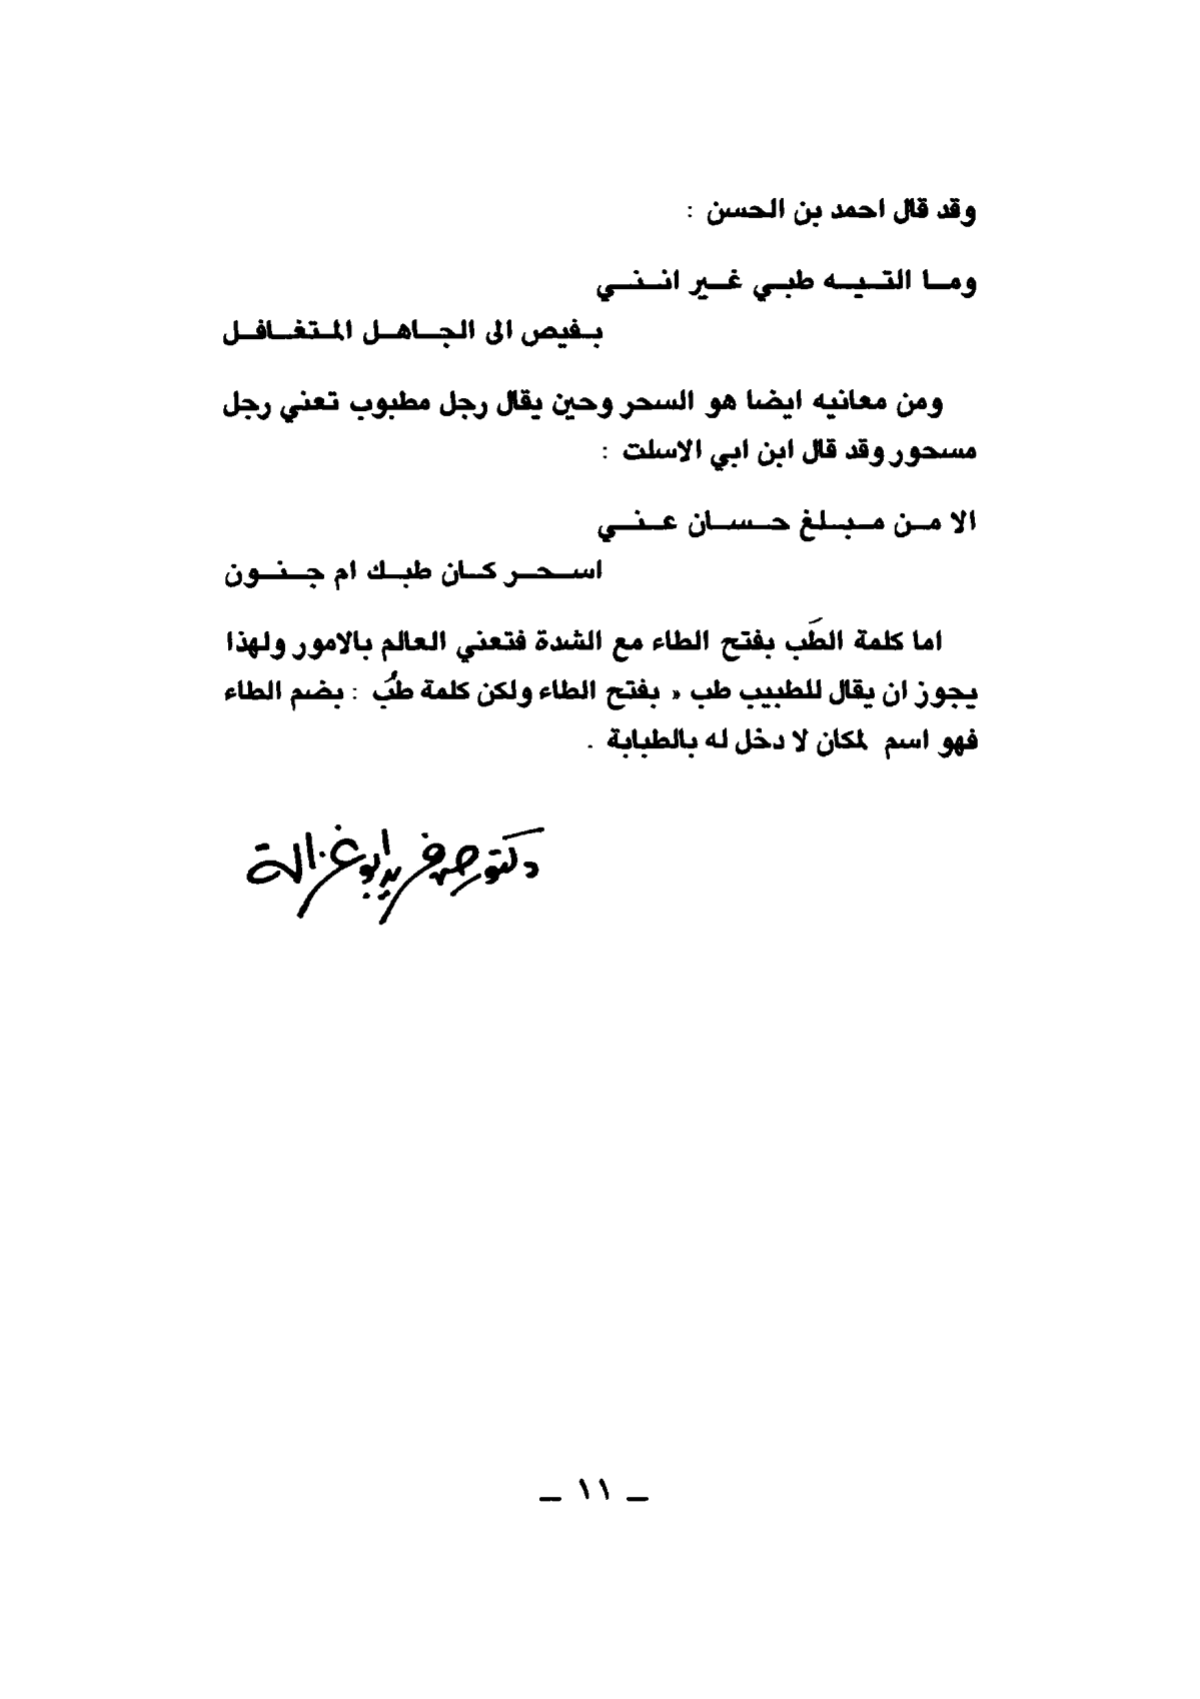 وقد قال احمد بن الحسن :
ومـا التـيـه طبـي غـير انـنـي
بـفيص الى الجـاهـل المـتغـافـل
ومن معانيه ايضا هو السحر وحين يقال رجل مطبوب تعني رجل
مسحور وقد قال ابن ابي الاسلت :
الا مـن مـبـلغ حـسـان عـنـي
اسـحـر كـان طبـك ام جـنـون
اما كلمة الطَب بفتح الطاء مع الشدة فتعني العالم بالامور ولهذا
يجوز ان يقال للطبيب طب « بفتح الطاء ولكن كلمة طُب : بضم الطاء
فهو اسم لمكان لا دخل له بالطبابة .
دكتور ابو غزالة
ـ ١١ ـ